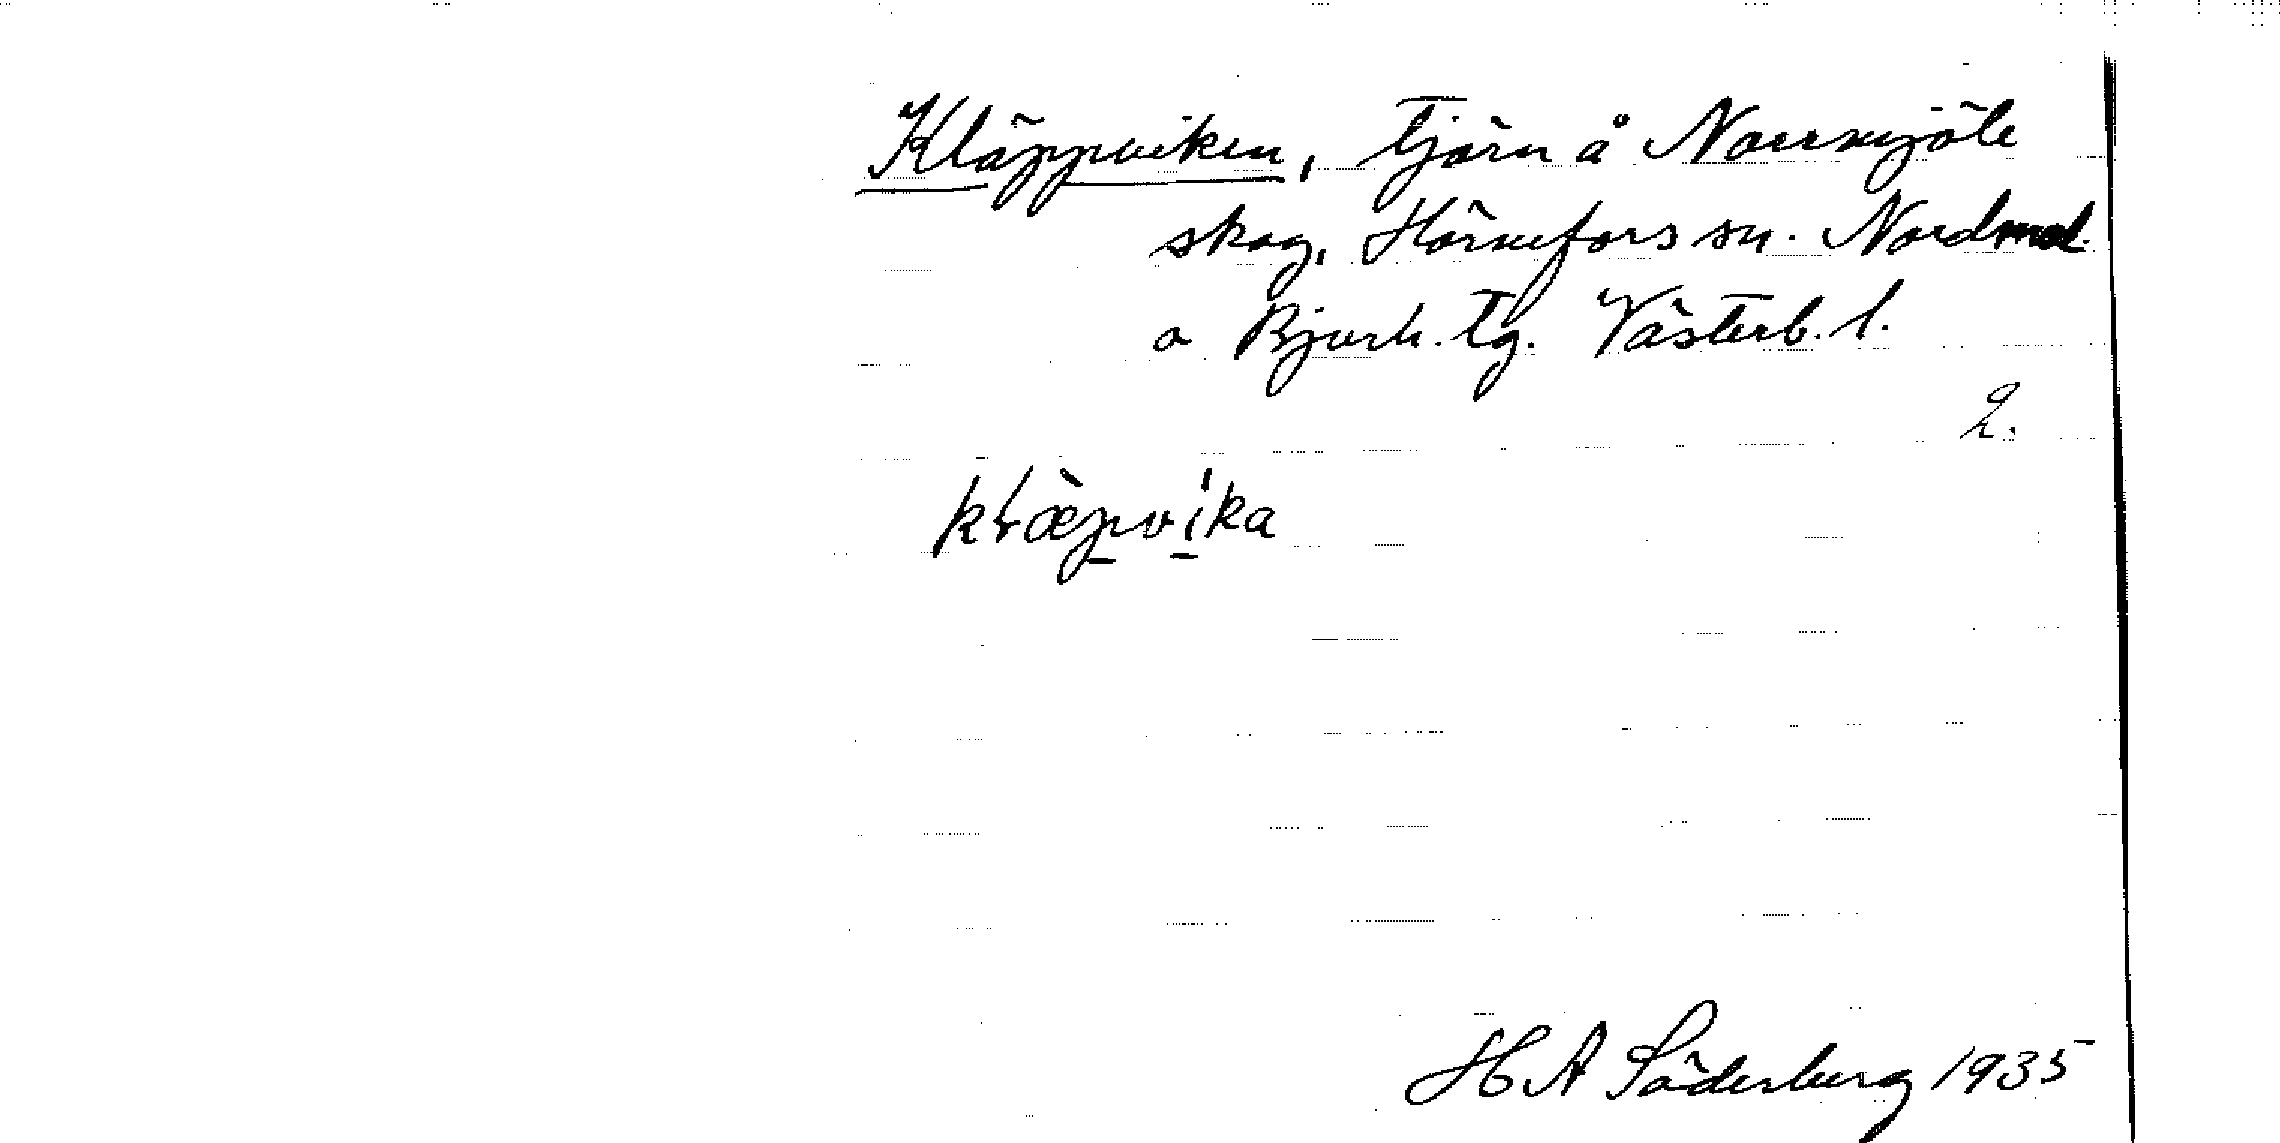 Kläppviken, tjärn å Norrmjöle
skog, Hörnefors sn. Nordmal.
o Bjurh. tg. Västerb. l.
2.
kɽæ̀pvíka
H A Söderberg 1935